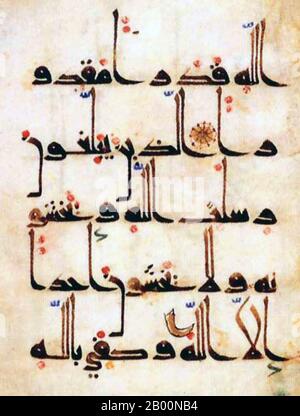 الله قدرا مقدو
را الذين يبلغون
رسلت الله و يخشو
نه ولا يخشون احدا
الا الله وكفى بالله
alamy - 2B00NB4